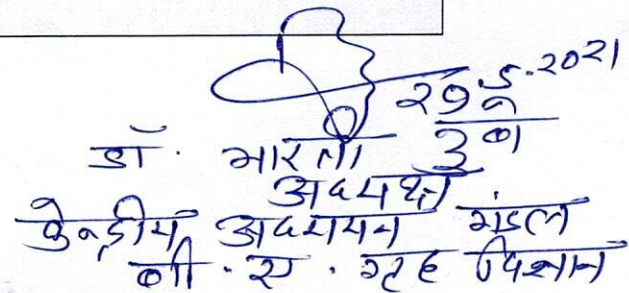 डॉ. भारती
अध्यक्ष
केन्द्रीय अध्ययन मंडल
बी. ए. गृह विज्ञान